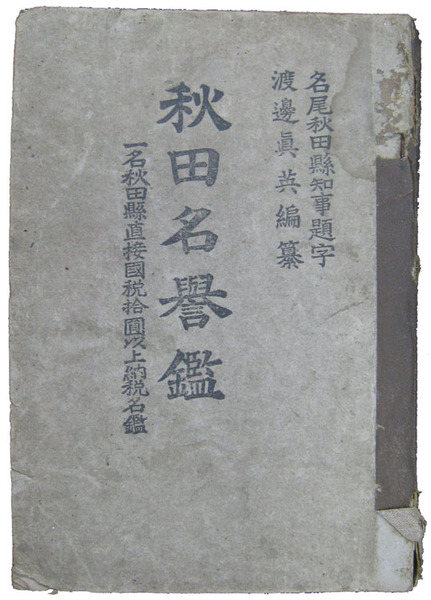 名尾秋田縣知事題字
渡邊眞英編纂
秋田名譽鑑
一名秋田縣直接國税拾圓以上納税名鑑